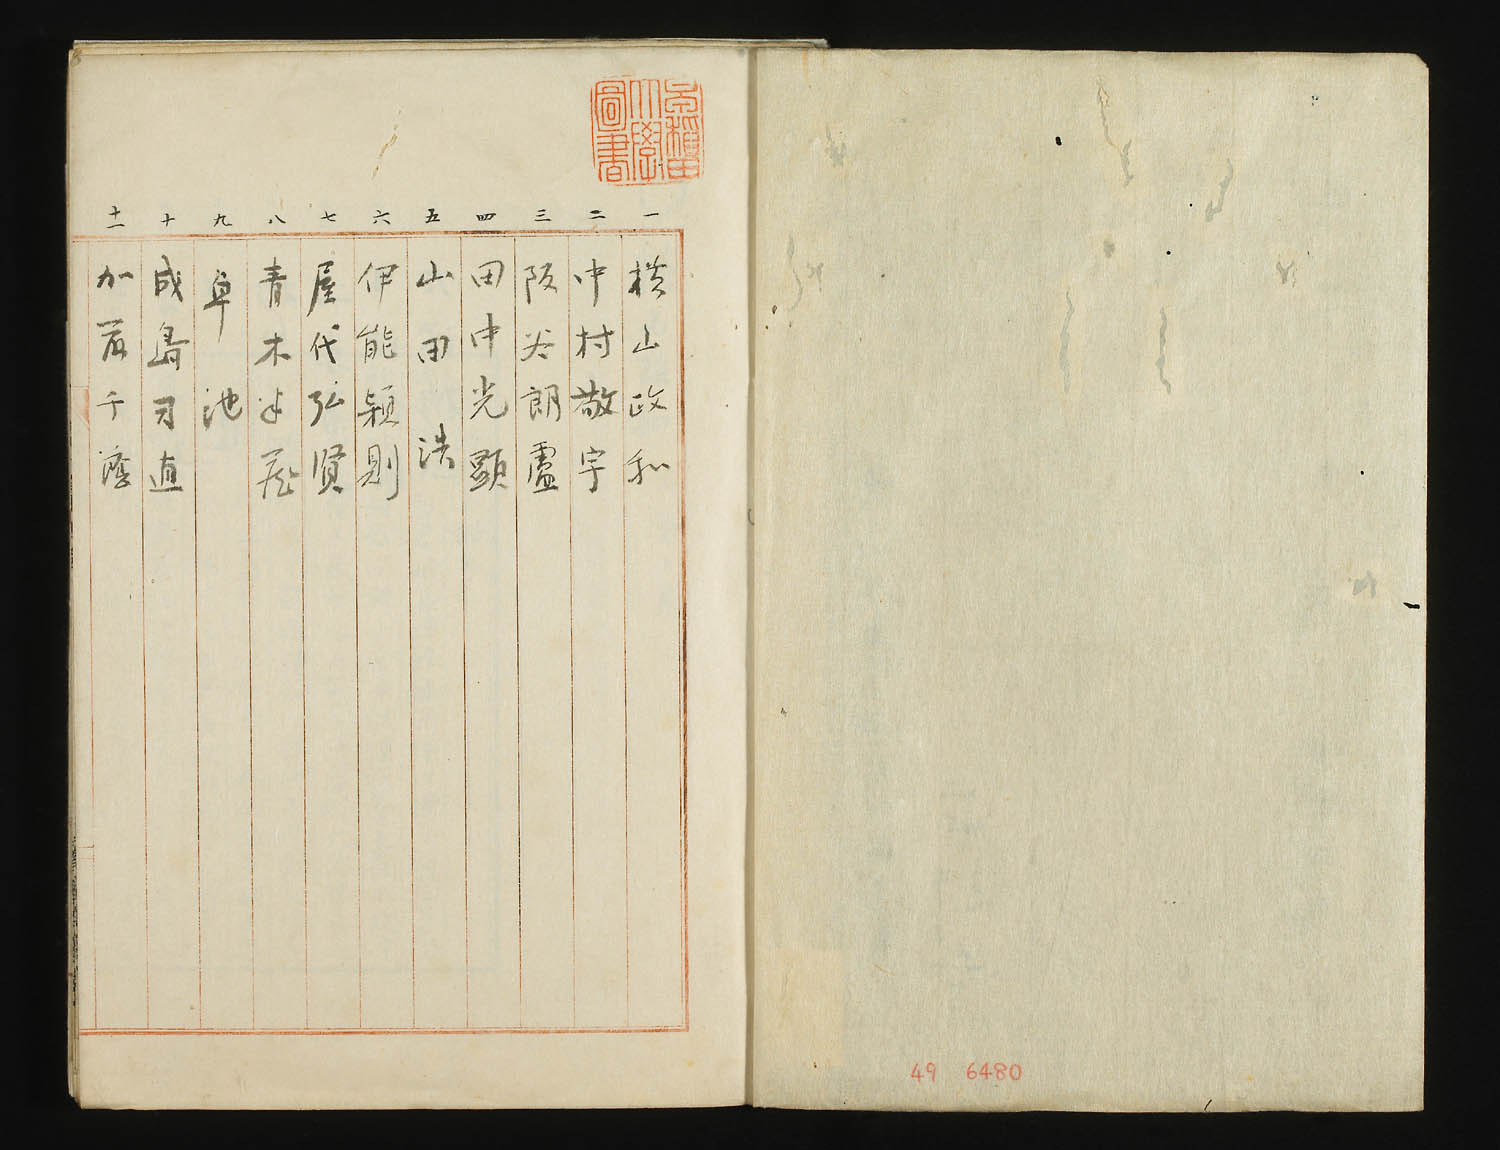 早稲田大學圖書
一 横山政和
二 中村敬宇
三 阪谷朗廬
四 田中光顕
五 山田 浩
六 伊能穎則
七 屋代弘賢
八 青木半蔵
九 卓池
十 成島司直
十一 加藤千蔭
49 6480